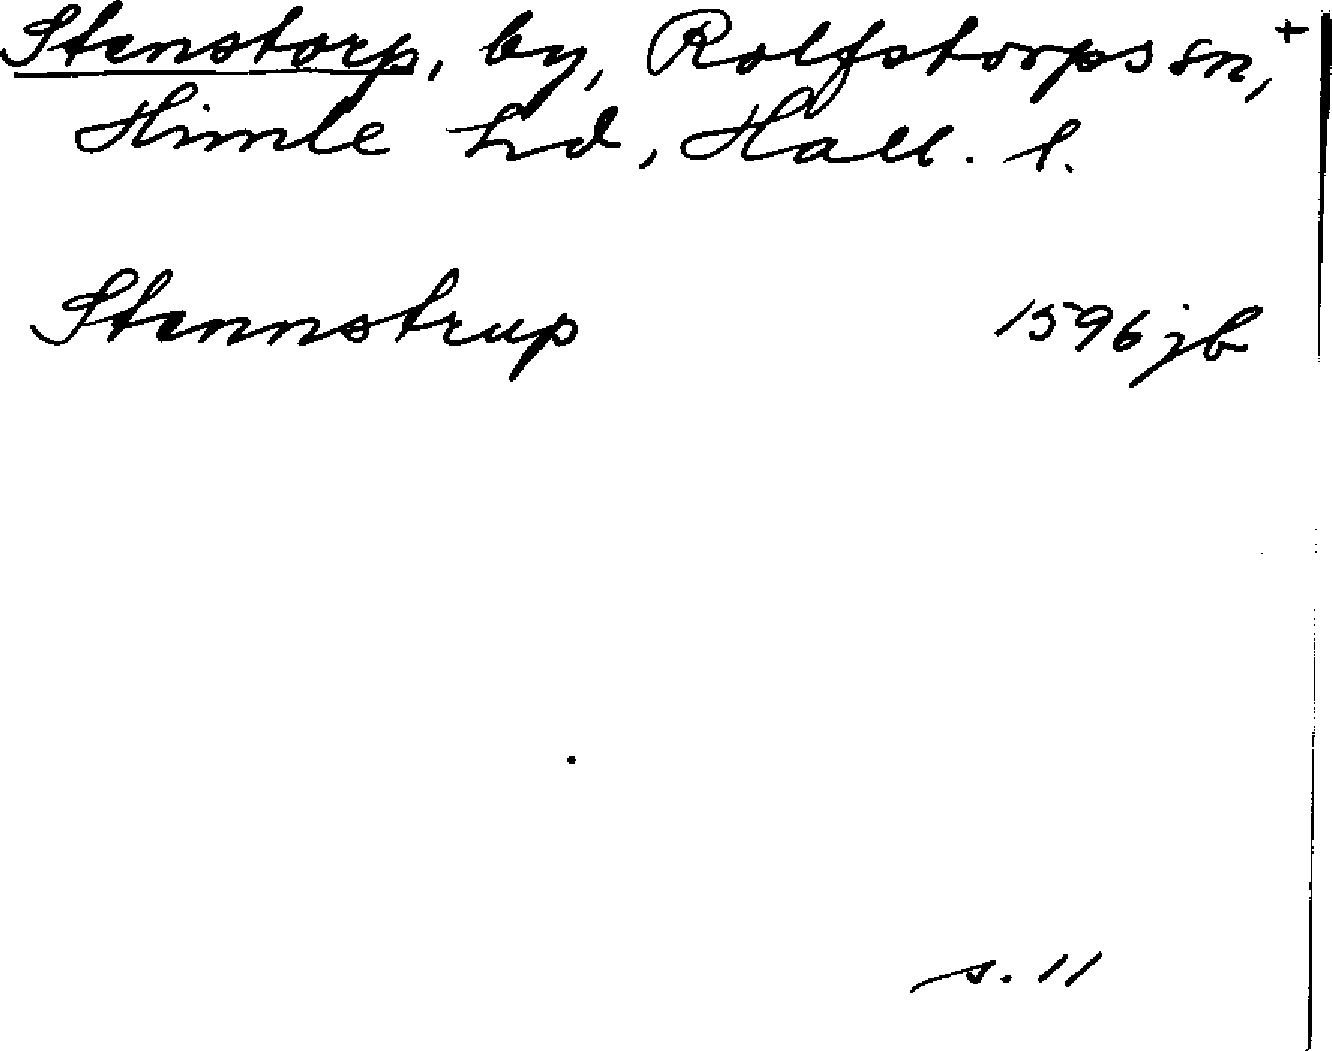 Stenstorp, by, Rolfstorps sn, +
Himle hd, Hall. l.
Stennstrup 1596 jb
s. 11